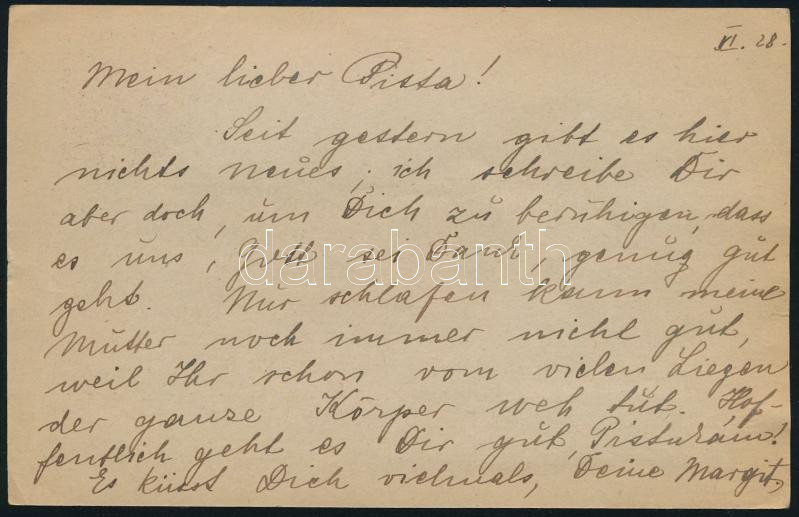 VI. 28.
Mein lieber Pista!
Seit gestern gibt es hier
nichts neues, ich schreibe Dir
aber doch, um Dich zu beruhigen, dass
es uns, Gott sei Dank, genug gut
darabanth.com
geht. Nur schlafen kann meine
Mutter noch immer nicht gut,
weil Ihr schon vom vielen Liegen
der ganze Körper weh tut. Hof-
fentlich geht es Dir gut, Pisturám!
Es küsst Dich vielmals, Deine Margit.